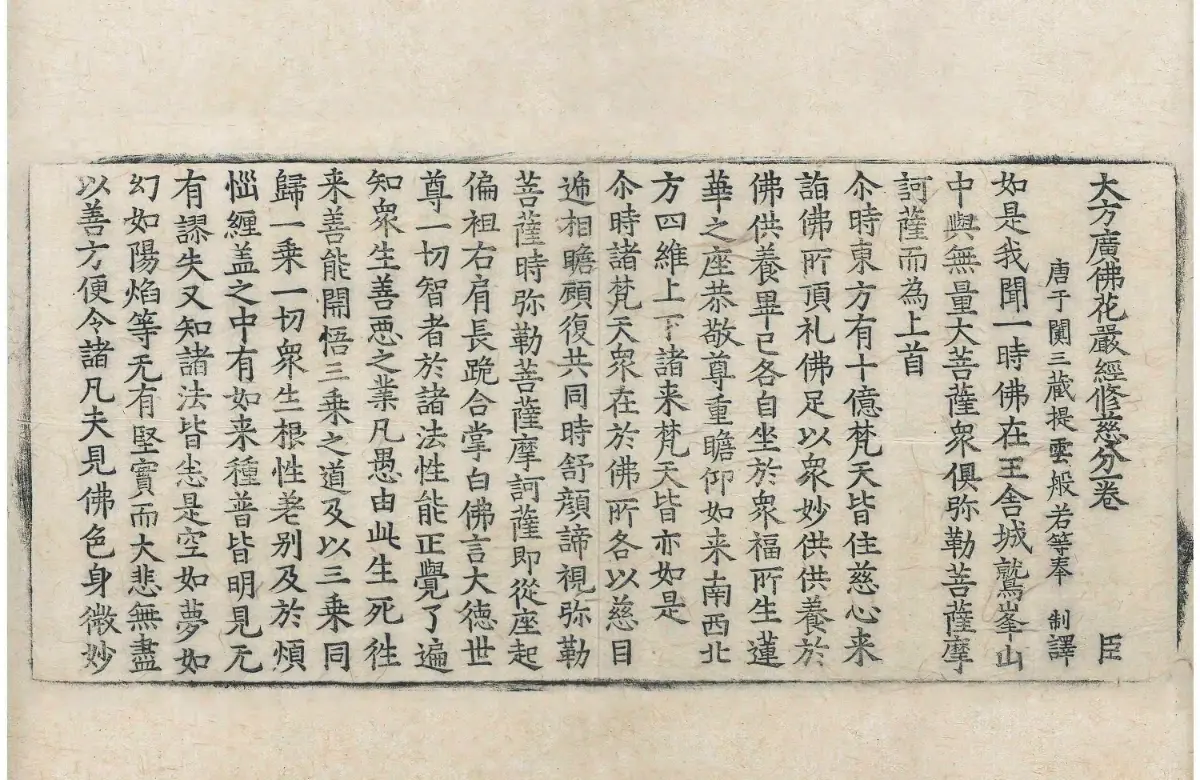 大方廣佛花嚴經修慈分一卷 臣
唐于闐三藏提雲般若等奉 制譯
如是我聞一時佛在王舍城鷲峯山
中與無量大菩薩衆俱弥勒菩薩摩
訶薩而為上首
尒時東方有十億梵天皆住慈心来
詣佛所頂礼佛足以衆妙供供養於
佛供養畢已各自坐於衆福所生蓮
華之座恭敬尊重瞻仰如来南西北
方四維上下諸来梵天皆亦如是
尒時諸梵天衆在於佛所各以慈目
遞相瞻顧復共同時舒顏諦視弥勒
菩薩時弥勒菩薩摩訶薩即從座起
偏袒右肩長跪合掌白佛言大德世
尊一切智者於諸法性能正覺了遍
知衆生善惡之業凡愚由此生死徃
来善能開悟三乘之道及以三乘同
歸一乘一切衆生根性差别及於煩
惱纏盖之中有如来種普皆明見无
有謬失又知諸法皆悉是空如夢如
幻如陽焰等无有堅實而大悲無盡
以善方便令諸凡夫見佛色身微妙